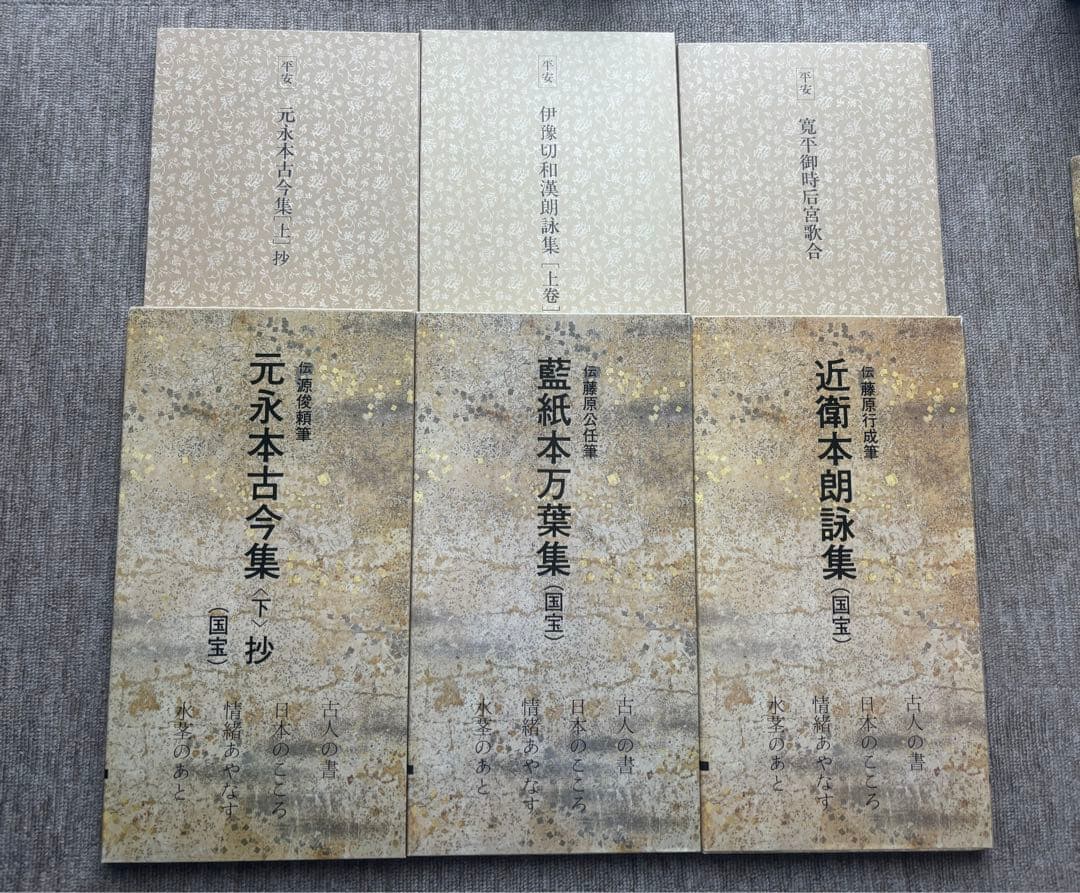 平安
元永本古今集[上]抄
平安
伊豫切和漢朗詠集[上巻]
平安
寛平御時后宮歌合
伝 源俊頼筆
元永本古今集〈下〉抄
(国宝)
古人の書
日本のこころ
情緒あやなす
水茎のあと
伝 藤原公任筆
藍紙本万葉集(国宝)
古人の書
日本のこころ
情緒あやなす
水茎のあと
伝 藤原行成筆
近衛本朗詠集(国宝)
古人の書
日本のこころ
情緒あやなす
水茎のあと